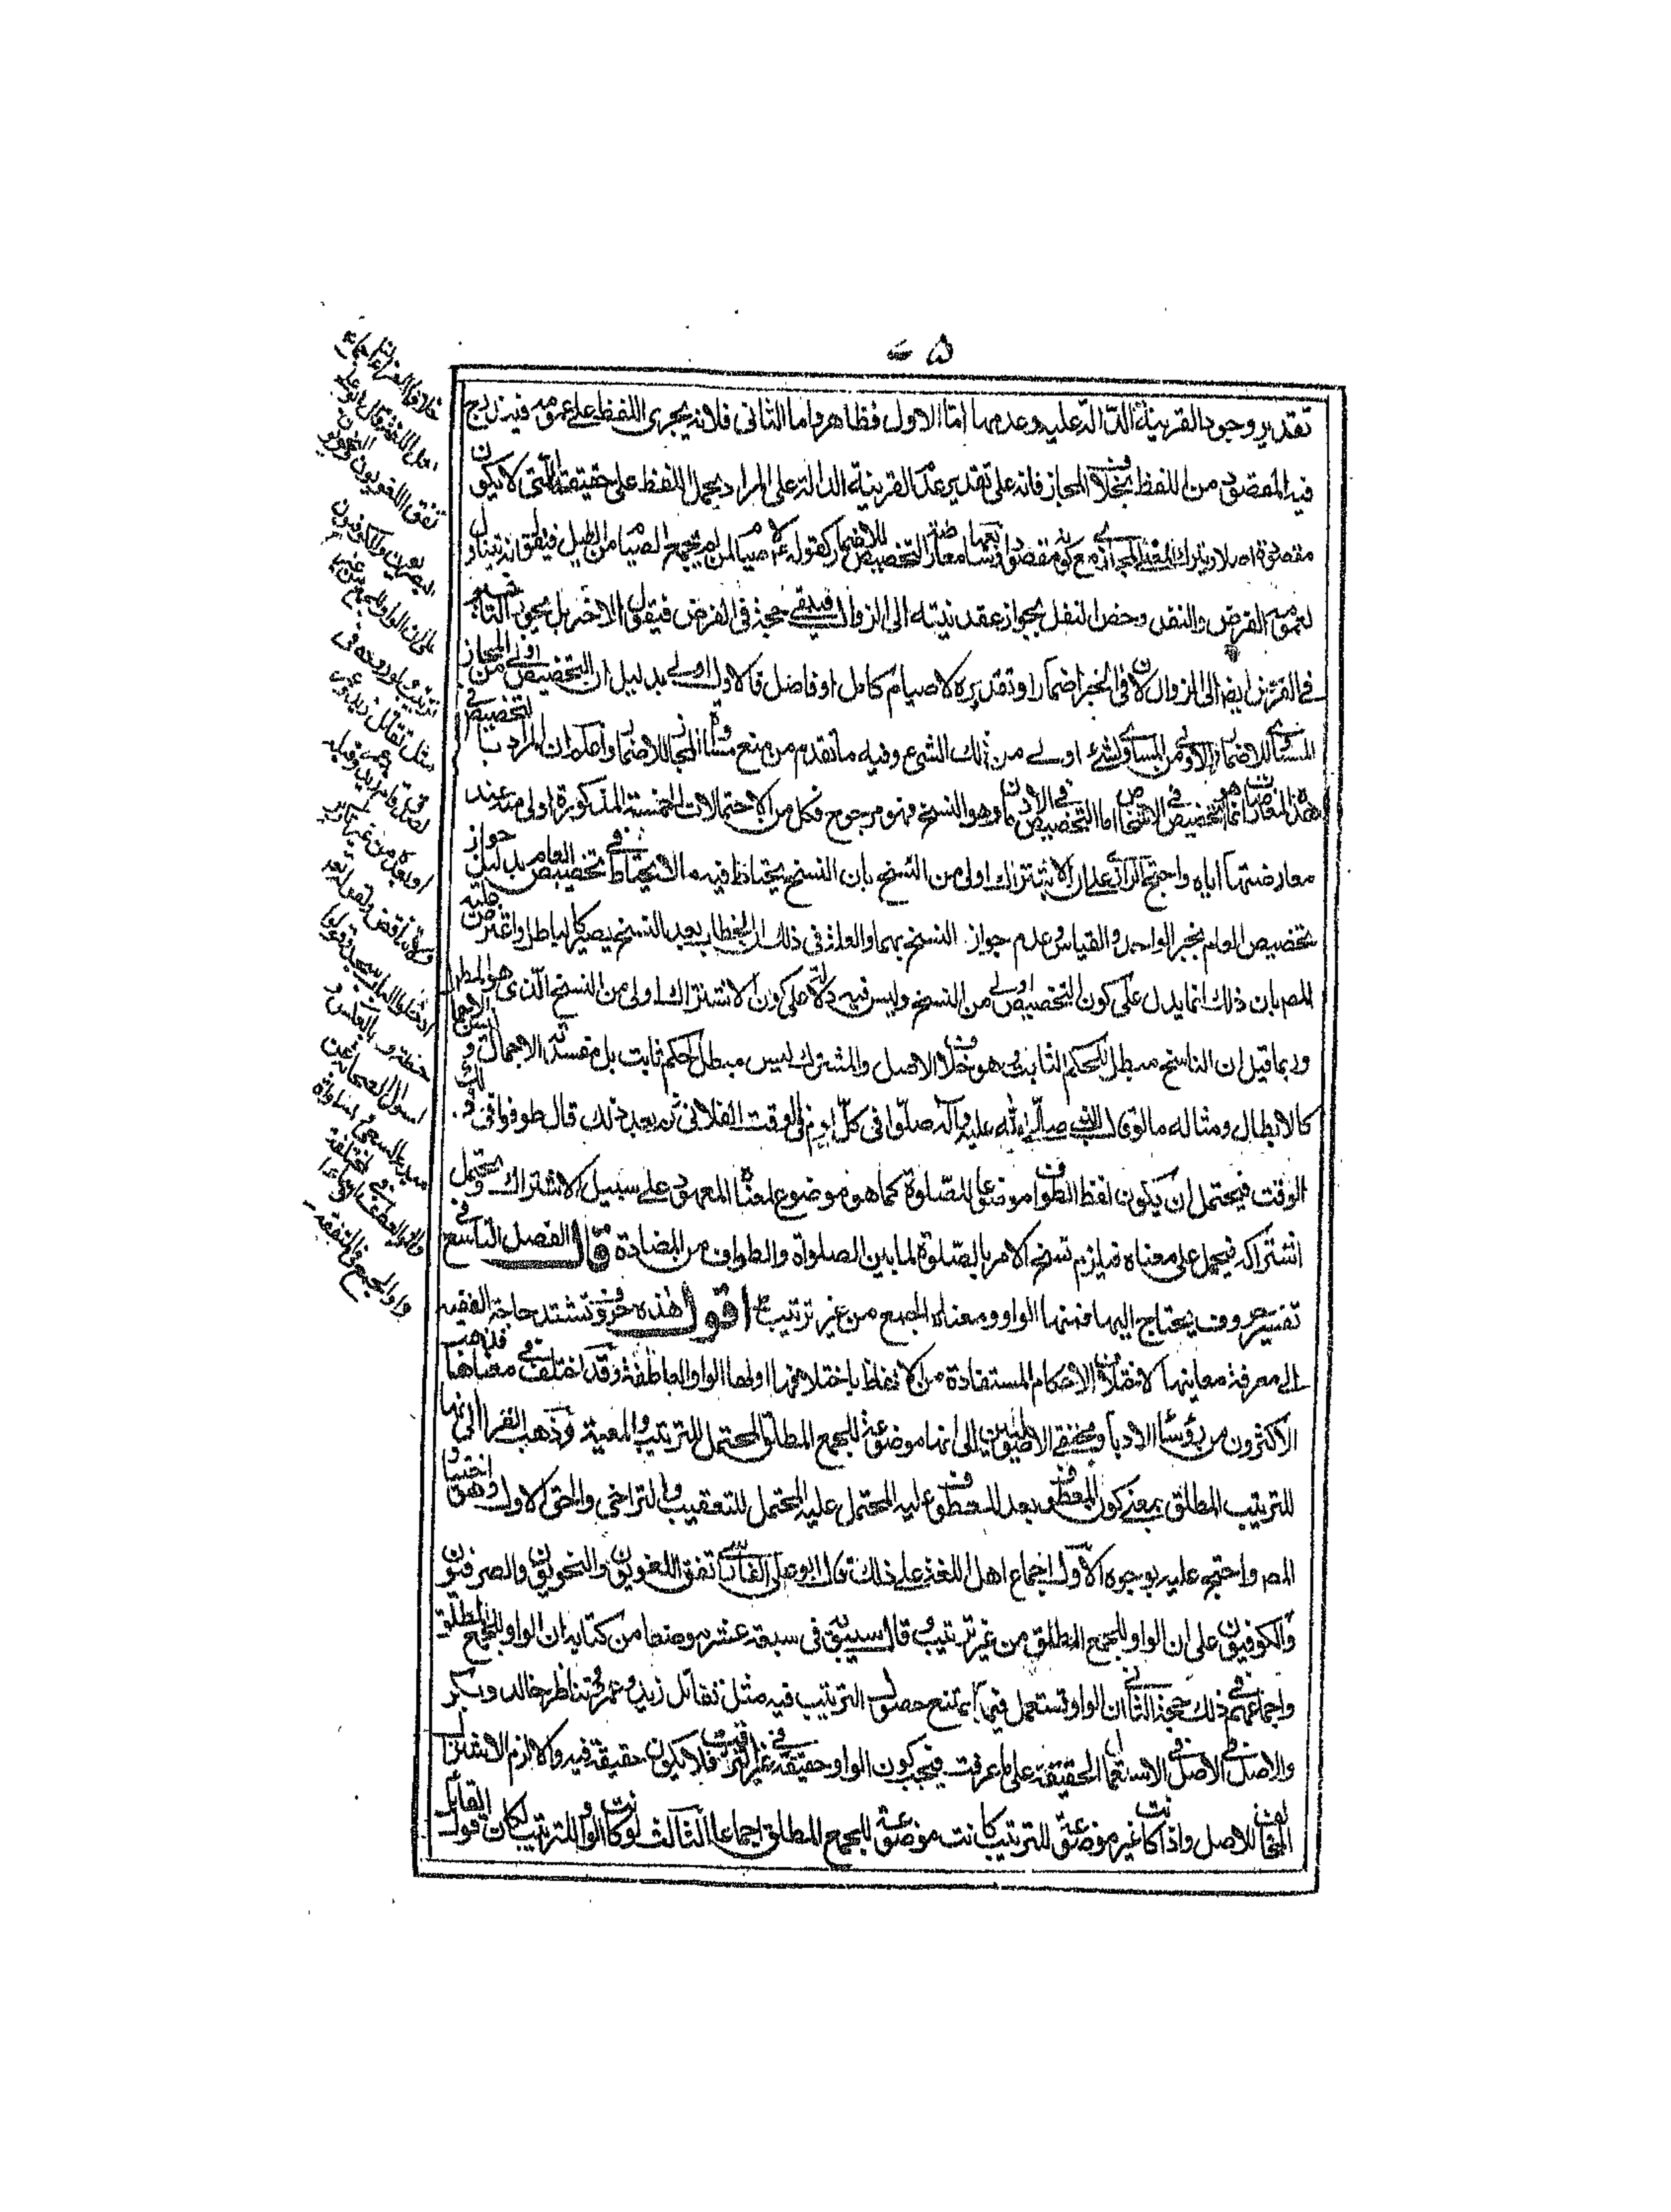 ۵
تقدير وجود القرينة الدالة عليه وعدمها اما الاول فظاهر واما الثاني فلانه يجرى اللفظ على عمومه فيندرج
فيه المقصود من اللفظ بخلاف المجاز فانه على تقدير عدم القرينة الدالة على المراد يحمل اللفظ على حقيقته التى لا يكون
مقصودة اصلا ويترك المجاز مع كونه مقصودا معارضة التخصيص للاضمار كقوله لا صيام لمن لم يجمع الصيام من الليل فيقول انه يتناول
بعمومه الفرض والنفل وخص النفل بجواز عقد نيته الى الزوال فيبقى حجة فى الفرض فيقول الاخر بل يجوز التاخير
فى الفرض ايضا الى الزوال لان فى الخبر اضمارا وتقديره لا صيام كامل او فاضل فالاول اولى بدليل ان التخصيص اولى من المجاز
المساوى للاضمار والاولى من المساوى لشئ اولى من ذلك الشئ وفيه ما تقدم من منع مساواة المجاز للاضمار واعلم ان المراد بالتخصيص فى
هذه انما هو التخصيص فى الاشخاص اما التخصيص فى الازمان وهو النسخ فهو مرجوح فكل من الاحتمالات الخمسة المذكورة اولى منه عند
معارضتها اياه واحتج الرازى على ان الاشتراك اولى من النسخ بان النسخ يحتاط فيه ما لا يحتاط فى تخصيص العام بدليل جواز
تخصيص العام بخبر الواحد والقياس وعدم جواز النسخ بهما والعلة فى ذلك ان الخطاب بعد النسخ يصير كالباطل واعترض عليه
المص بان ذلك انما يدل على كون التخصيص اولى من النسخ وليس فيه دلالة على كون الاشتراك اولى من النسخ الذى هو المطلوب
وربما قيل ان الناسخ مبطل للحكم الثابت وهو خلاف الاصل والمشترك ليس مبطل لحكم ثابت بل مفسدته الاجمال و
كالابطال ومثاله ما لو قال النبى صلى الله عليه وآله صلوا فى كل يوم فى الوقت الفلانى ثم بعد ذلك قال طوفوا فى ذلك
الوقت فيحتمل ان يكون لفظ الطواف موضوعا للصلوة كما هو موضوع لمعناه المعهود على سبيل الاشتراك ويحتمل
اشتراكه فيحمل على معناه فيلزم نسخ الامر بالصلوة لما بين الصلواة والطواف من المضادة قال الفصل التاسع فى
تفسير حروف يحتاج اليها فمنها الواو ومعناه الجمع من غير ترتيب اقول هذه حروف تشتد حاجة الفقيه
الى معرفة معانيها لاختلاف الاحكام المستفادة من الالفاظ باختلافها اولها الواو العاطفة وقد اختلف فى معناها فذهب
الاكثرون من رؤساء الادباء ومحققى الاصوليين الى انها موضوعة للجمع المطلق المحتمل للترتيب والمعية وذهب الفراء الى انها
للترتيب المطلق بمعنى كون المعطوف بعد المعطوف عليه المحتمل عليه المحتمل للتعقيب والتراخى والحق الاول وهو اختيار
المص واحتج عليه بوجوه الاول اجماع اهل اللغة على ذلك قال ابو على الفارسى اتفق اللغويون والنحويون والصرفيون
والكوفيون على ان الواو للجمع المطلق من غير ترتيب وقال سيبويه فى سبعة عشر موضعا من كتابه ان الواو للجمع المطلق
واجماعهم فى ذلك حجة الثانى ان الواو تستعمل فيما يمتنع حصول الترتيب فيه مثل تقاتل زيد وعمرو وتناظر خالد وبكر
والاصل الاصل فى الاستعمال الحقيقة على ما عرفت فيجب كون الواو حقيقة فى غير الترتيب فلا يكون حقيقة فيه والا لزم الاشتراك
المخالف للاصل واذا كانت غير موضوعة للترتيب كانت موضوعة للجمع المطلق اجماعا الثالث لو كانت الواو للترتيب لكان قول القائل
خلافا للفراء لنا اجماع
اهل اللغة قال ابو على
اتفق اللغويون والنحويون
البصريون والكوفيون
على ان الواو للجمع من غير
ترتيب ولوروده فى
مثل تقاتل زيد وعمرو
او بعده من غير تكرير
ولا تناقض
ادخلوا الباب سجدا وقولوا
حطة وبالعكس و
لسؤال الصحابة عن
واو الجمع فى المتفقة